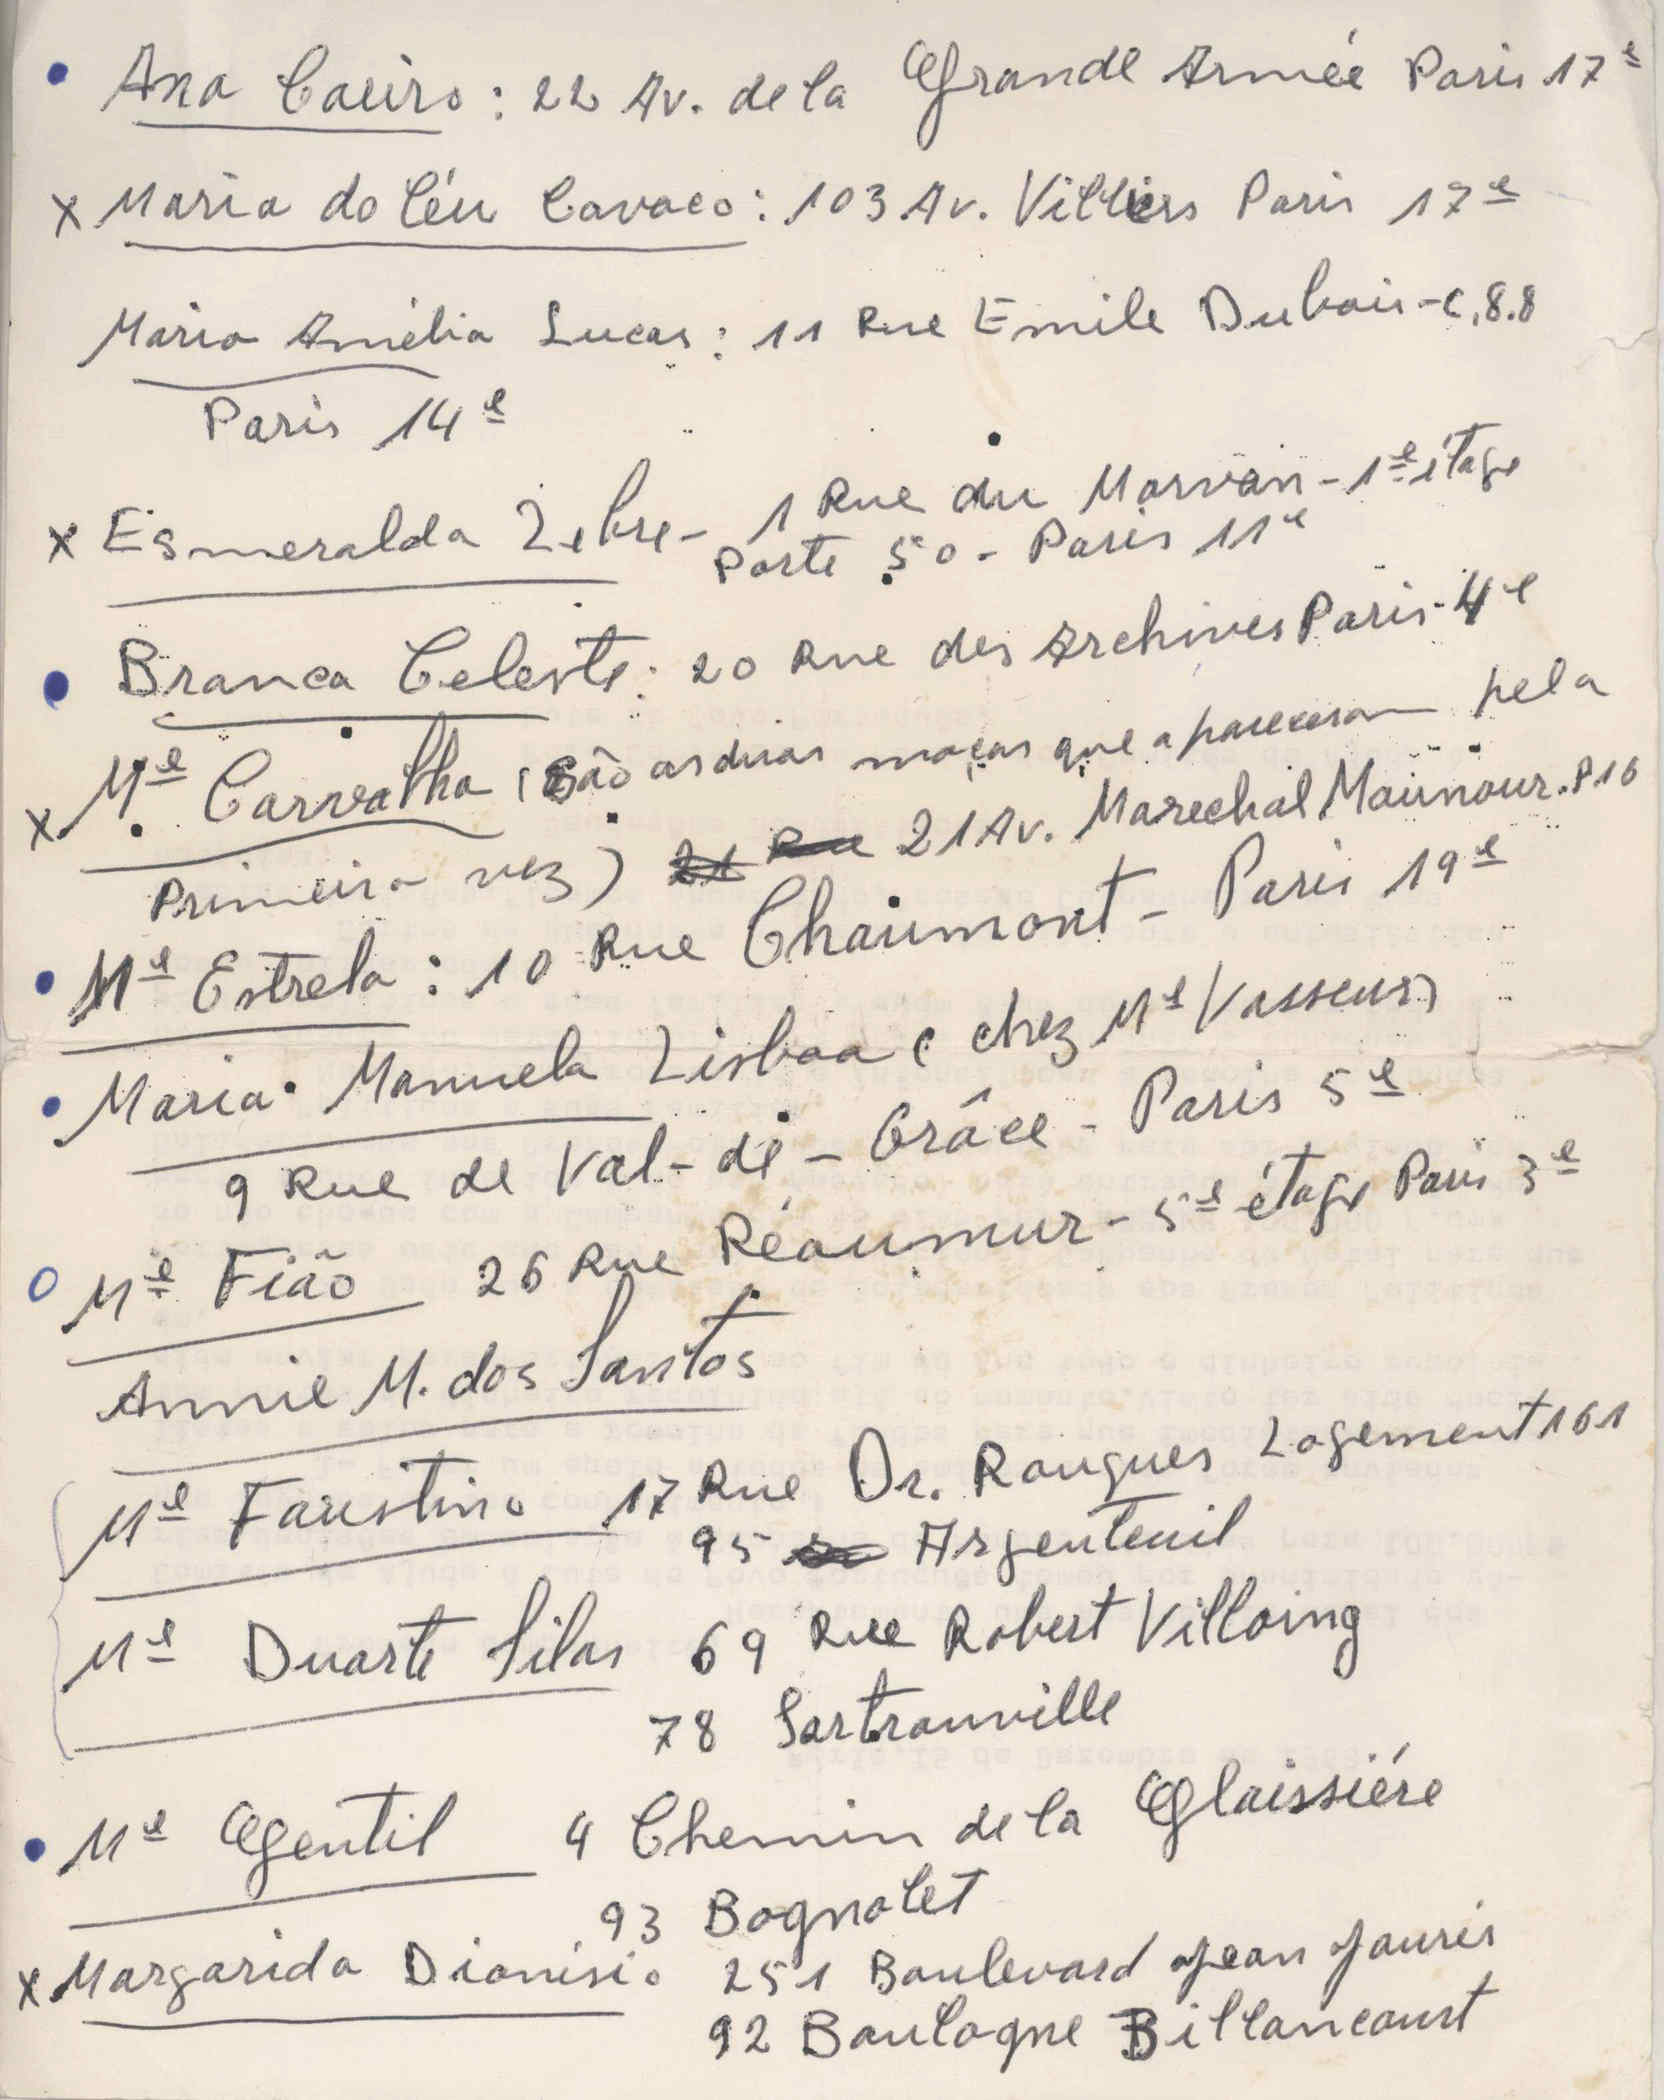 • Ana Caeiro: 22 Av. de la Grande Armée Paris 17e
x Maria do Céu Cavaco: 103 Av. Villiers Paris 17e
Maria Amélia Lucas: 11 Rue Emile Dubois - C.8.8
Paris 14e
x Esmeralda Zebre - 1 Rue du Morvan - 1e étage
Porte 50 - Paris 11e
• Branca Celeste: 20 Rue des Archives Paris - 4e
x Me Carvalho (São as duas moças que apareceram pela
primeira vez) 21 Av. Marechal Maunour. P.16
• Me Estrela: 10 Rue Chaumont - Paris 19e
• Maria Manuela Lisboa (chez Me Vasseur)
9 Rue de Val-de-Grâce - Paris 5e
o Me Fião 26 Rue Réaumur - 5e étage Paris 3e
Annie M. dos Santos
Me Faustino 17 Rue Dr. Rougues Logement 161
95 Argenteuil
Me Duarte Silas 69 Rue Robert Villoing
78 Sartrouville
• Me Gentil 4 Chemin de la Glaissiére
93 Bagnolet
x Margarida Dionísio 251 Boulevard Jean Jaurés
92 Boulogne Billancourt